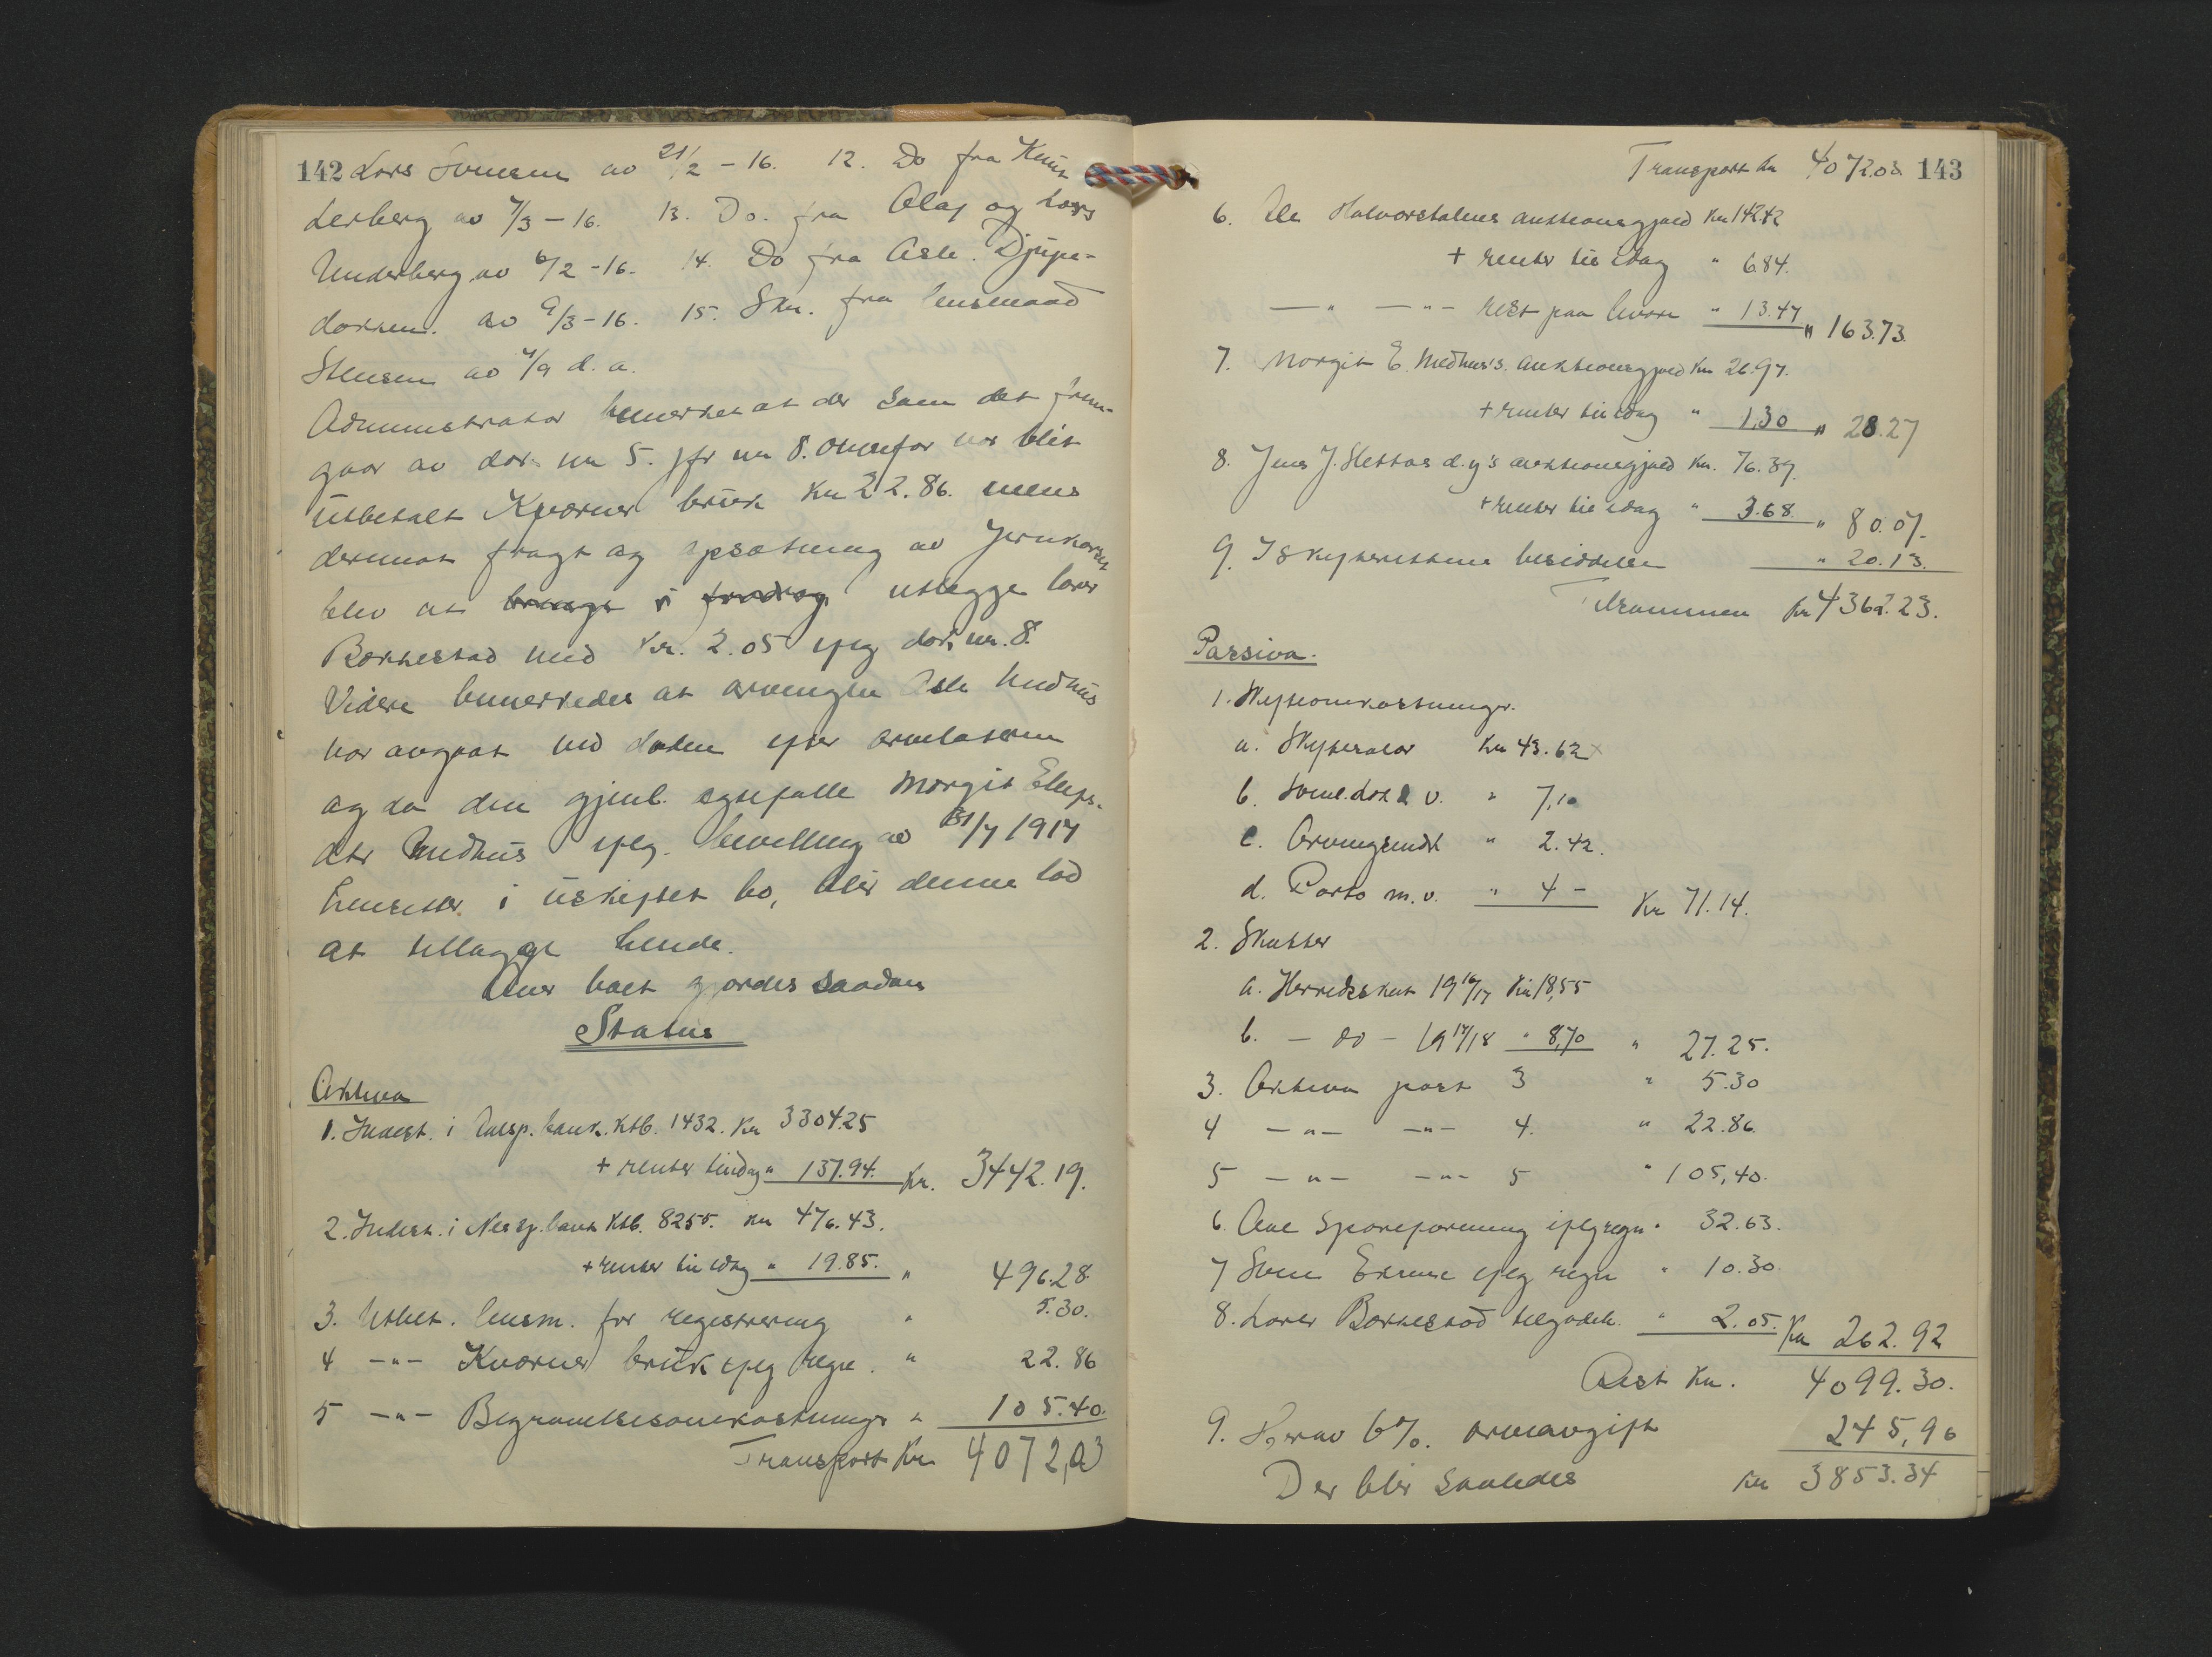 142 Lars Svensen av 21/2 - 16. 12. Do fra Knut
Lerberg av 7/3 - 16. 13. Do. fra Olaf og Lars
Underberg av 6/2 - 16. 14. Do fra Asle Djupe-
dalen. av 9/3 - 16. 15. Skr. fra lensmand
Stensen av 4/9 d. a.
Administrator bemerket at der som det frem-
gaar av dok. nr 5. jfr nr 8. ovenfor var blit
utbetalt Kværner bruk Kr 22.86. mens
derimot fragt og opsætning av Jernkorset
blev at utlegge Lars
Bakkestad med Kr. 2.05 iflg dok. nr. 8.
Videre bemerkedes at arvingen Asle Medhus
var avgaat ved døden efter arveladeren
og da den gjenl. egtefælle Margit Elefs-
dtr Medhus iflg. bevilling av 31/7 1917
hensitter i uskiftet bo, blir denne lod
at tillægge hende.
Over boet gjordes saadan
Status
Aktiva
1. Indest. i sp. bank. Ktb. 1432. Kr 3304.25
+ renter tildag " 137.94. Kr. 3442.19.
2. Indest. i Nes sp. bank Ktb. 8255. Kr 476.43.
+ renter til idag " 19.85. " 496.28.
3. Utbet. lensm. for registrering " 5.30.
4 -"- Kværner bruk iflg regn. " 22.86
5 -"- Begravelsesomkostninger " 105.40.
Transport Kr 4072,03
Transport Kr 4072.03 143
6. Ole Halvorsbølens auktionsgjæld Kr 142.42
+ renter til idag " 6.84.
-"- -"- rest paa " 13.47 " 163.73.
7. Margit E. Medhus's. auktionsgjæld Kr 26.97.
+ renter til idag " 1,30 " 28.27
8. Jens J. Slettas d.y's auktionsgjæld Kr. 76.39.
+ renter til idag " 3.68. " 80.07.
9. I skifterettens besiddelse " 20.13.
Tilsammen Kr 4362.23.
Passiva.
1. Skifteomkostninger.
a. Skiftesalær Kr 43.62
b. v. " 7,10
c. " 2.42.
d. Porto m. v. " 4 - Kr 71.14.
2. Skatter
a. Herredsskat 1916/17 Kr 18,55
b. - do - 1917/18 " 8,70 " 27.25.
3. Aktiva post 3 " 5.30
4 -"- -"- 4. " 22.86.
5 -"- -"- 5 " 105,40.
6. Aal Spareforening ifl regn " 32.63.
7 Sven ifлg regn " 10.30.
8. Lars Bakkestad tilgodeh. " 2.05. Kr 262.92
Rest Kr. 4099.30.
9. Herav 6%. arveavgift 245,96
Der blir saaledes Kr 3853.34